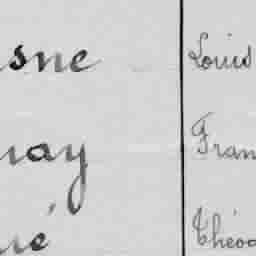 sne Louis
nay Fran
né Théod